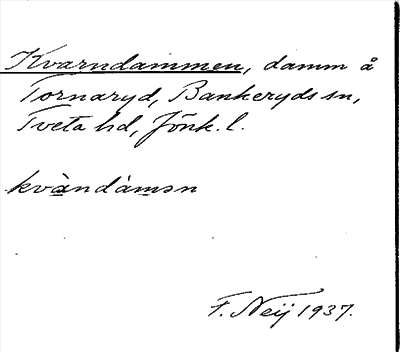 Kvarndammen, damm å
Tornaryd, Bankeryds sn,
Tveta hd, Jönk. l.
kvàndàmən
F. Neij 1937.